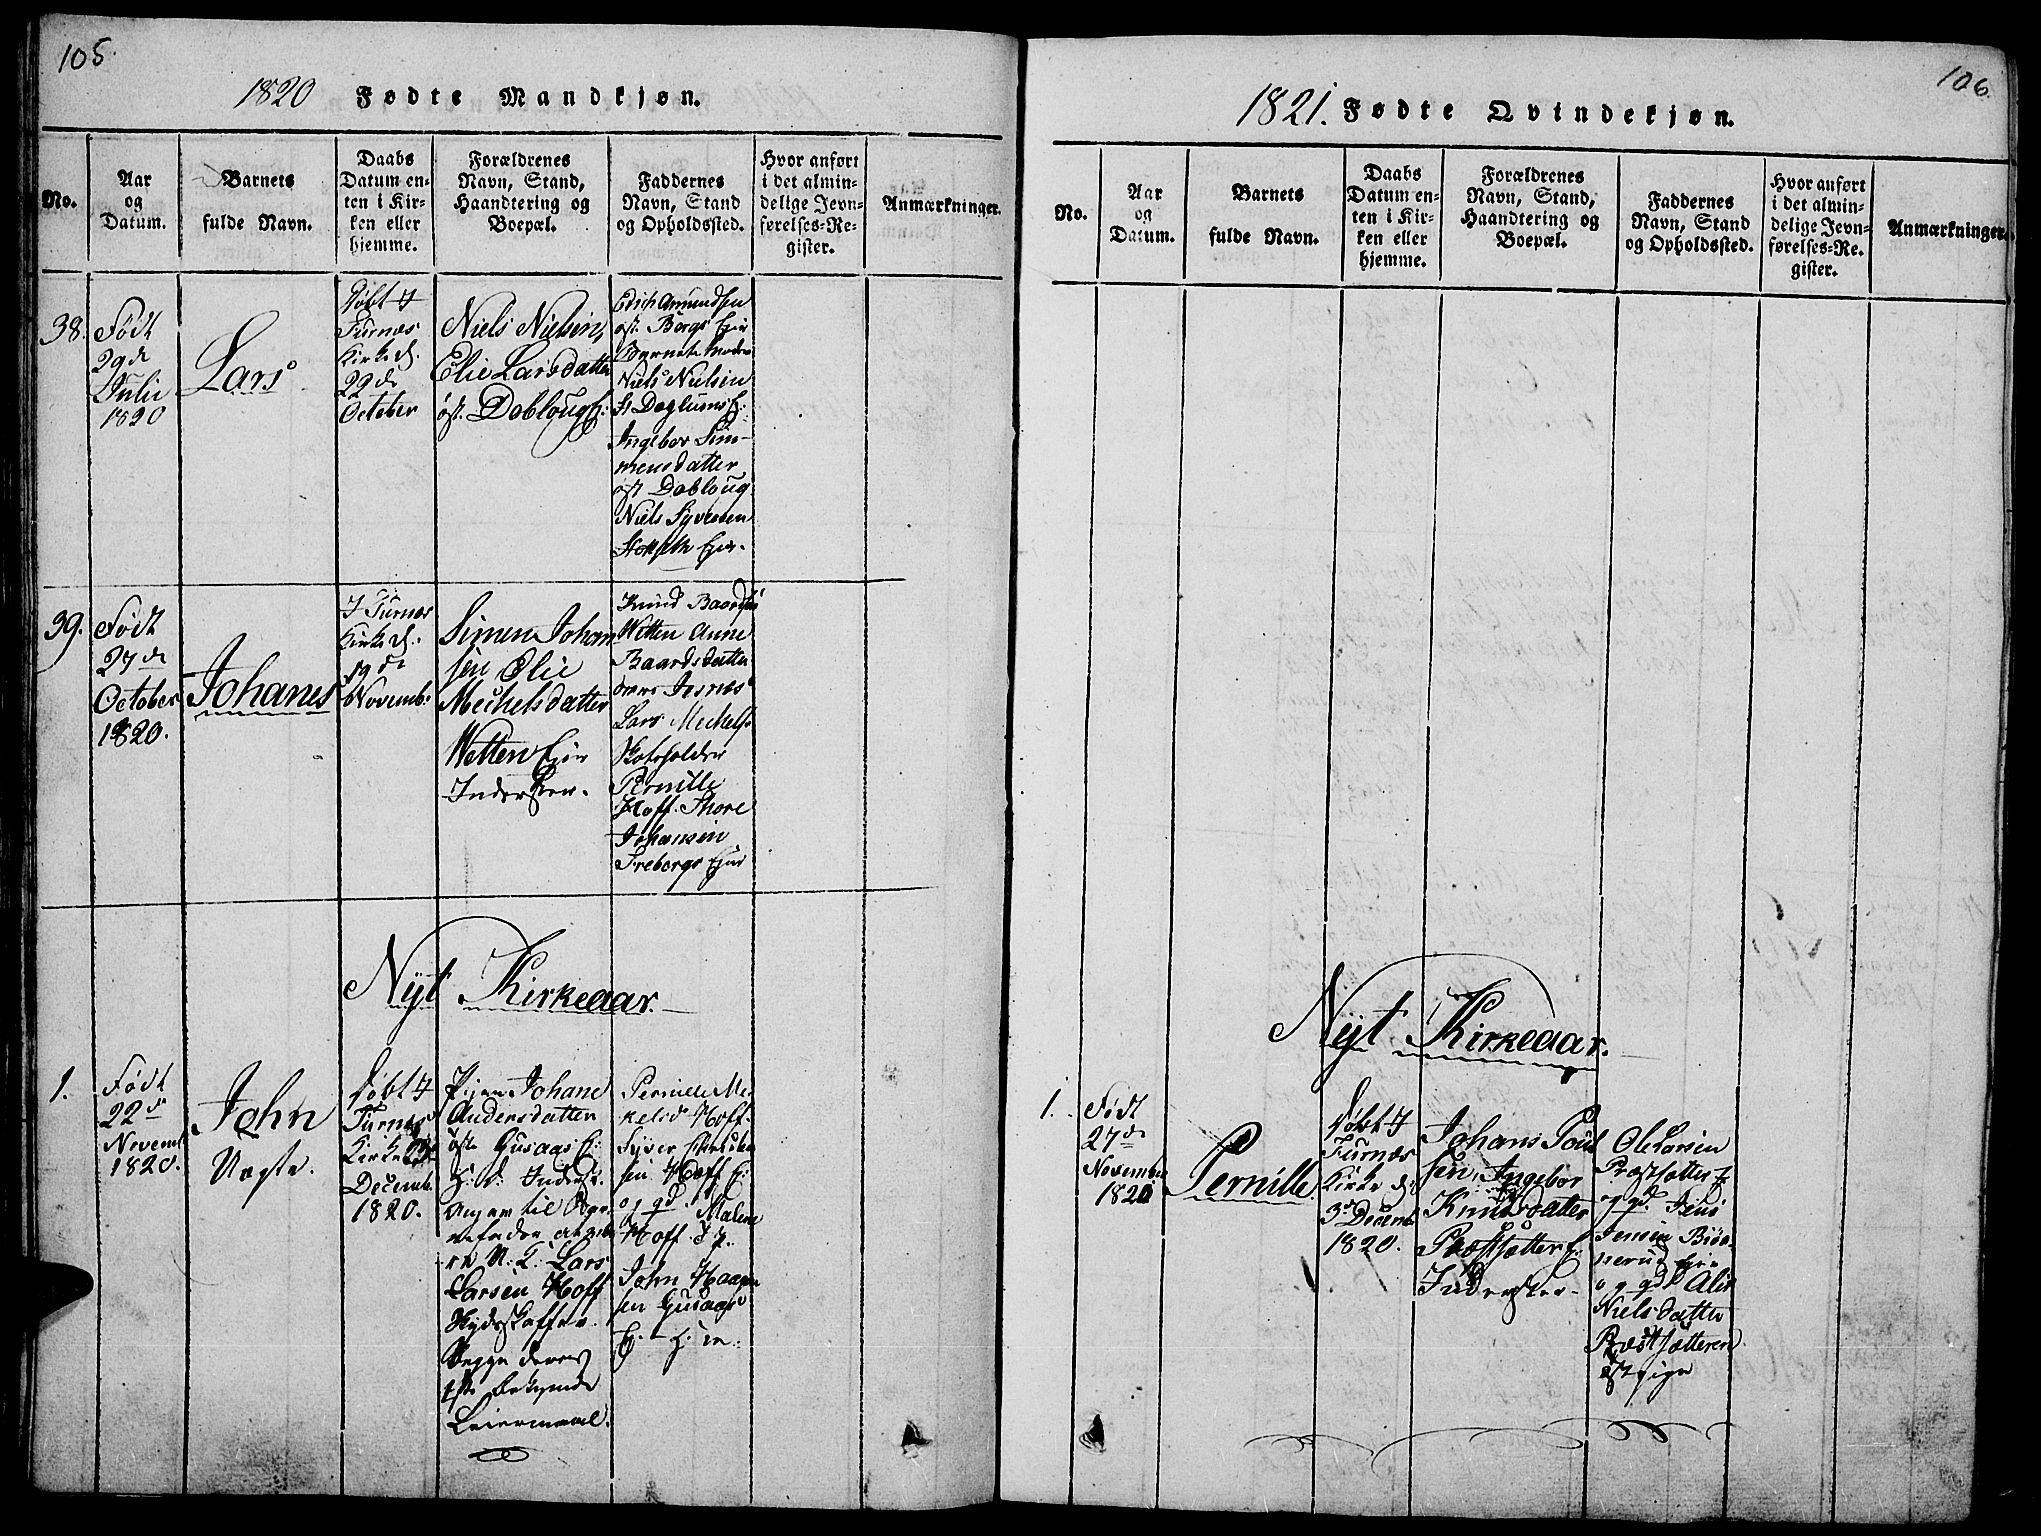 105.
1820 Fødte Mandkjøn.
No.
Aar
og
Datum.
Barnets
fulde Navn.
Daabs
Datum en-
ten i Kir-
ken eller
hjemme.
Forældrenes
Navn, Stand,
Haandtering og
Boepæl.
Faddernes
Navn, Stand
og Opholdssted.
Hvor anført
i det almin-
delige Jevn-
førelses-Re-
gister.
Anmærkninger.
38.
Født
29de
Julii
1820
Lars
Døbt I
Furnæs
Kirke d.
29de
October
Niels Nielsen,
Elie Larsdatter
øst. Dobloug E:
Erich Amundsen
øst. Borgs Eier
Barnets Moder
Niels Nielsen
Ingebor Sim-
mensdatter
øst Dobloug
Niels Syversen
39.
Født
27de
October
1820.
Johanes
I Furnæs
Kirke d.
19de
Novemb:
Simen Johan
sen Olie
Mechelsdatter
Wetten Eier
Inderster.
Knud Baardsen
Wetten Anne
Baardsdatter
Jesnes
Lars Mechels.
Pernille
Hoff. Thore
Johansen
Freborgs Eier
Nyt Kirkeaar.
1.
Født
22de
Novemb
1820.
John
Uægte.
Døbt I
Furnæs
Kirke
Decemb.
1820.
Pigen Johane
Andersdatter
øst. Gusaas E:
angav til Barne
nefader
Lars
Larsen Hoff
Begge deres
Leiermaal.
Pernille Me-
kelsd Hoff.
Syver
sen Hoff E:
og gd Malene
Hoff.
John Haagen
sen Gusaas
106.
1821. Fødte Qvindekjøn.
No.
Aar
og
Datum.
Barnets
fulde Navn.
Daabs
Datum en-
ten i Kir-
ken eller
hjemme.
Forældrenes
Navn, Stand,
Haandtering og
Boepæl.
Faddernes
Navn, Stand
og Opholdssted.
Hvor anført
i det almin-
delige Jevn-
førelses-Re-
gister.
Anmærkninger.
Nyt Kirkeaar.
1.
Født
27de
November
1820
Pernille
Døbt I
Furnæs
Kirke d:
3de Decemb
1820.
Johans Poul
sen, Ingebor
Knudsdatter
Præstsætter E:
Inderster.
Ole Larsen
Præstsætter E
og gd. Jens
Jensen Biør-
nerud Eie
og gd Alis
Nielsdatter
Præstsætteren